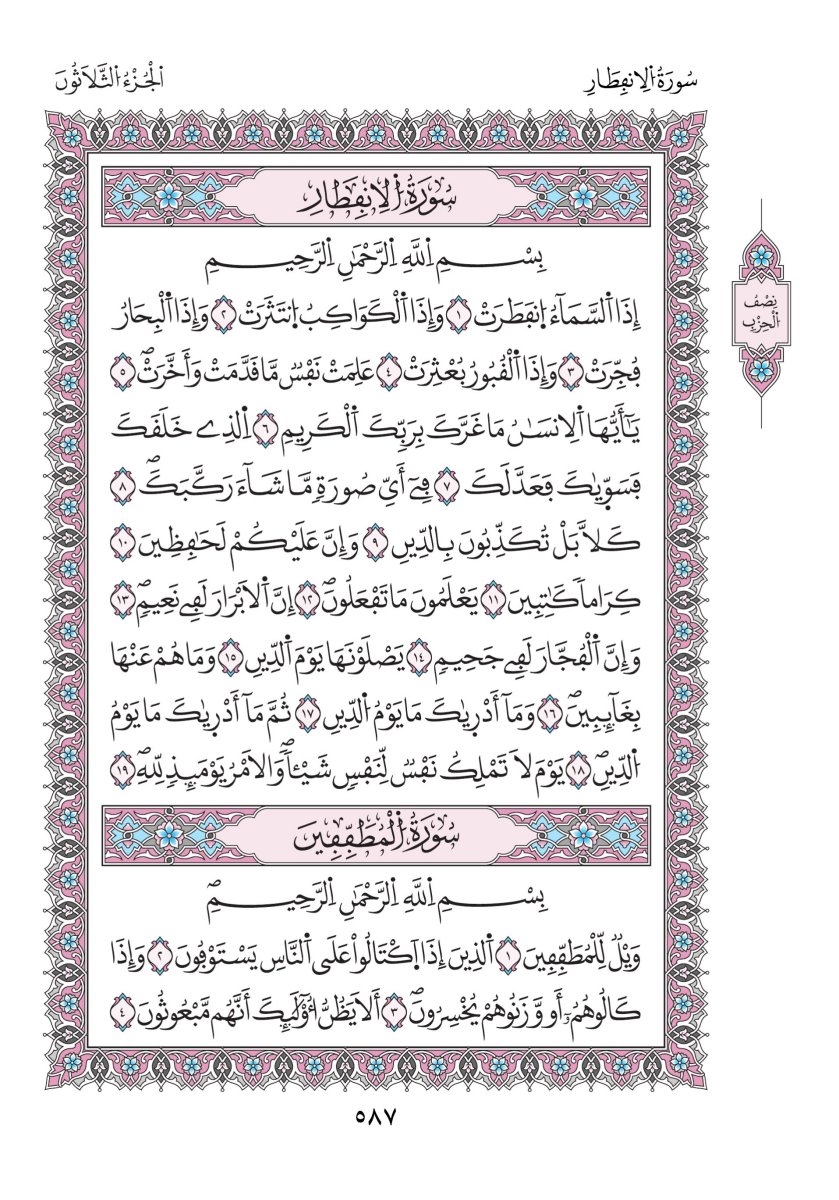 سُورَةُ اُ۬لِانفِطَارِ
اَ۬لْجُزْءُ اُ۬لثَّلَاثُونَ
سُورَةُ اُ۬لِانفِطَارِ
بِسْمِ اِ۬للَّهِ اِ۬لرَّحْمَٰنِ اِ۬لرَّحِيمِ
إِذَا اَ۬لسَّمَآءُ اُ۪نفَطَرَتْ ١ وَإِذَا اَ۬لْكَوَاكِبُ اُ۪نتَثَرَتْ ٢ وَإِذَا اَ۬لْبِحَارُ
فُجِّرَتْ ٣ وَإِذَا اَ۬لْقُبُورُ بُعْثِرَتْ ٤ عَلِمَتْ نَفْسٞ مَّا قَدَّمَتْ وَأَخَّرَتْۖ ٥
يَٰٓأَيُّهَا اَ۬لِانسَٰنُ مَا غَرَّكَ بِرَبِّكَ اَ۬لْكَرِيمِ ٦ اِ۬لذِے خَلَقَكَ
فَسَوّ۪يٰكَ فَعَدَّلَكَ ٧ فِےٓ أَيِّ صُورَةٖ مَّا شَآءَ رَكَّبَكَۖ ٨
كَلَّا بَلْ تُكَذِّبُونَ بِالدِّينِ ٩ وَإِنَّ عَلَيْكُمْ لَحَٰفِظِينَ ١٠
كِرَاماٗ كَٰتِبِينَ ١١ يَعْلَمُونَ مَا تَفْعَلُونَۖ ١٢ إِنَّ اَ۬لَابْرَارَ لَفِے نَعِيمٖۖ ١٣
وَإِنَّ اَ۬لْفُجَّارَ لَفِے جَحِيمٖ ١٤ يَصْلَوْنَهَا يَوْمَ اَ۬لدِّينِ ١٥ وَمَا هُمْ عَنْهَا
بِغَآئِبِينَۖ ١٦ وَمَآ أَدْر۪يٰكَ مَا يَوْمُ اُ۬لدِّينِ ١٧ ثُمَّ مَآ أَدْر۪يٰكَ مَا يَوْمُ
اُ۬لدِّينِۖ ١٨ يَوْمَ لَا تَمْلِكُ نَفْسٞ لِّنَفْسٖ شَيْـٔاٗۖ وَالَامْرُ يَوْمَئِذٖ لِّلهِۖ ١٩
سُورَةُ اُ۬لْمُطَفِّفِينَ
بِسْمِ اِ۬للَّهِ اِ۬لرَّحْمَٰنِ اِ۬لرَّحِيمِۖ
وَيْلٞ لِّلْمُطَفِّفِينَ ١ اَ۬لذِينَ إِذَا اَ۪كْتَالُواْ عَلَى اَ۬لنَّاسِ يَسْتَوْفُونَ ٢ وَإِذَا
كَالُوهُمُۥٓ أَو وَّزَنُوهُمْ يُخْسِرُونَۖ ٣ أَلَا يَظُنُّ أُوْلَٰٓئِكَ أَنَّهُم مَّبْعُوثُونَ ٤
نِصْفُ
اُ۬لْحِزْبِ
٥٨٧